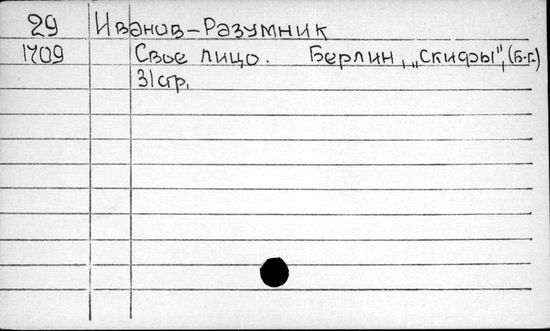 29 Иванов-Разумник
1709 Свое лицо. Берлин, „Скифы", (Б.г.)
31 стр.